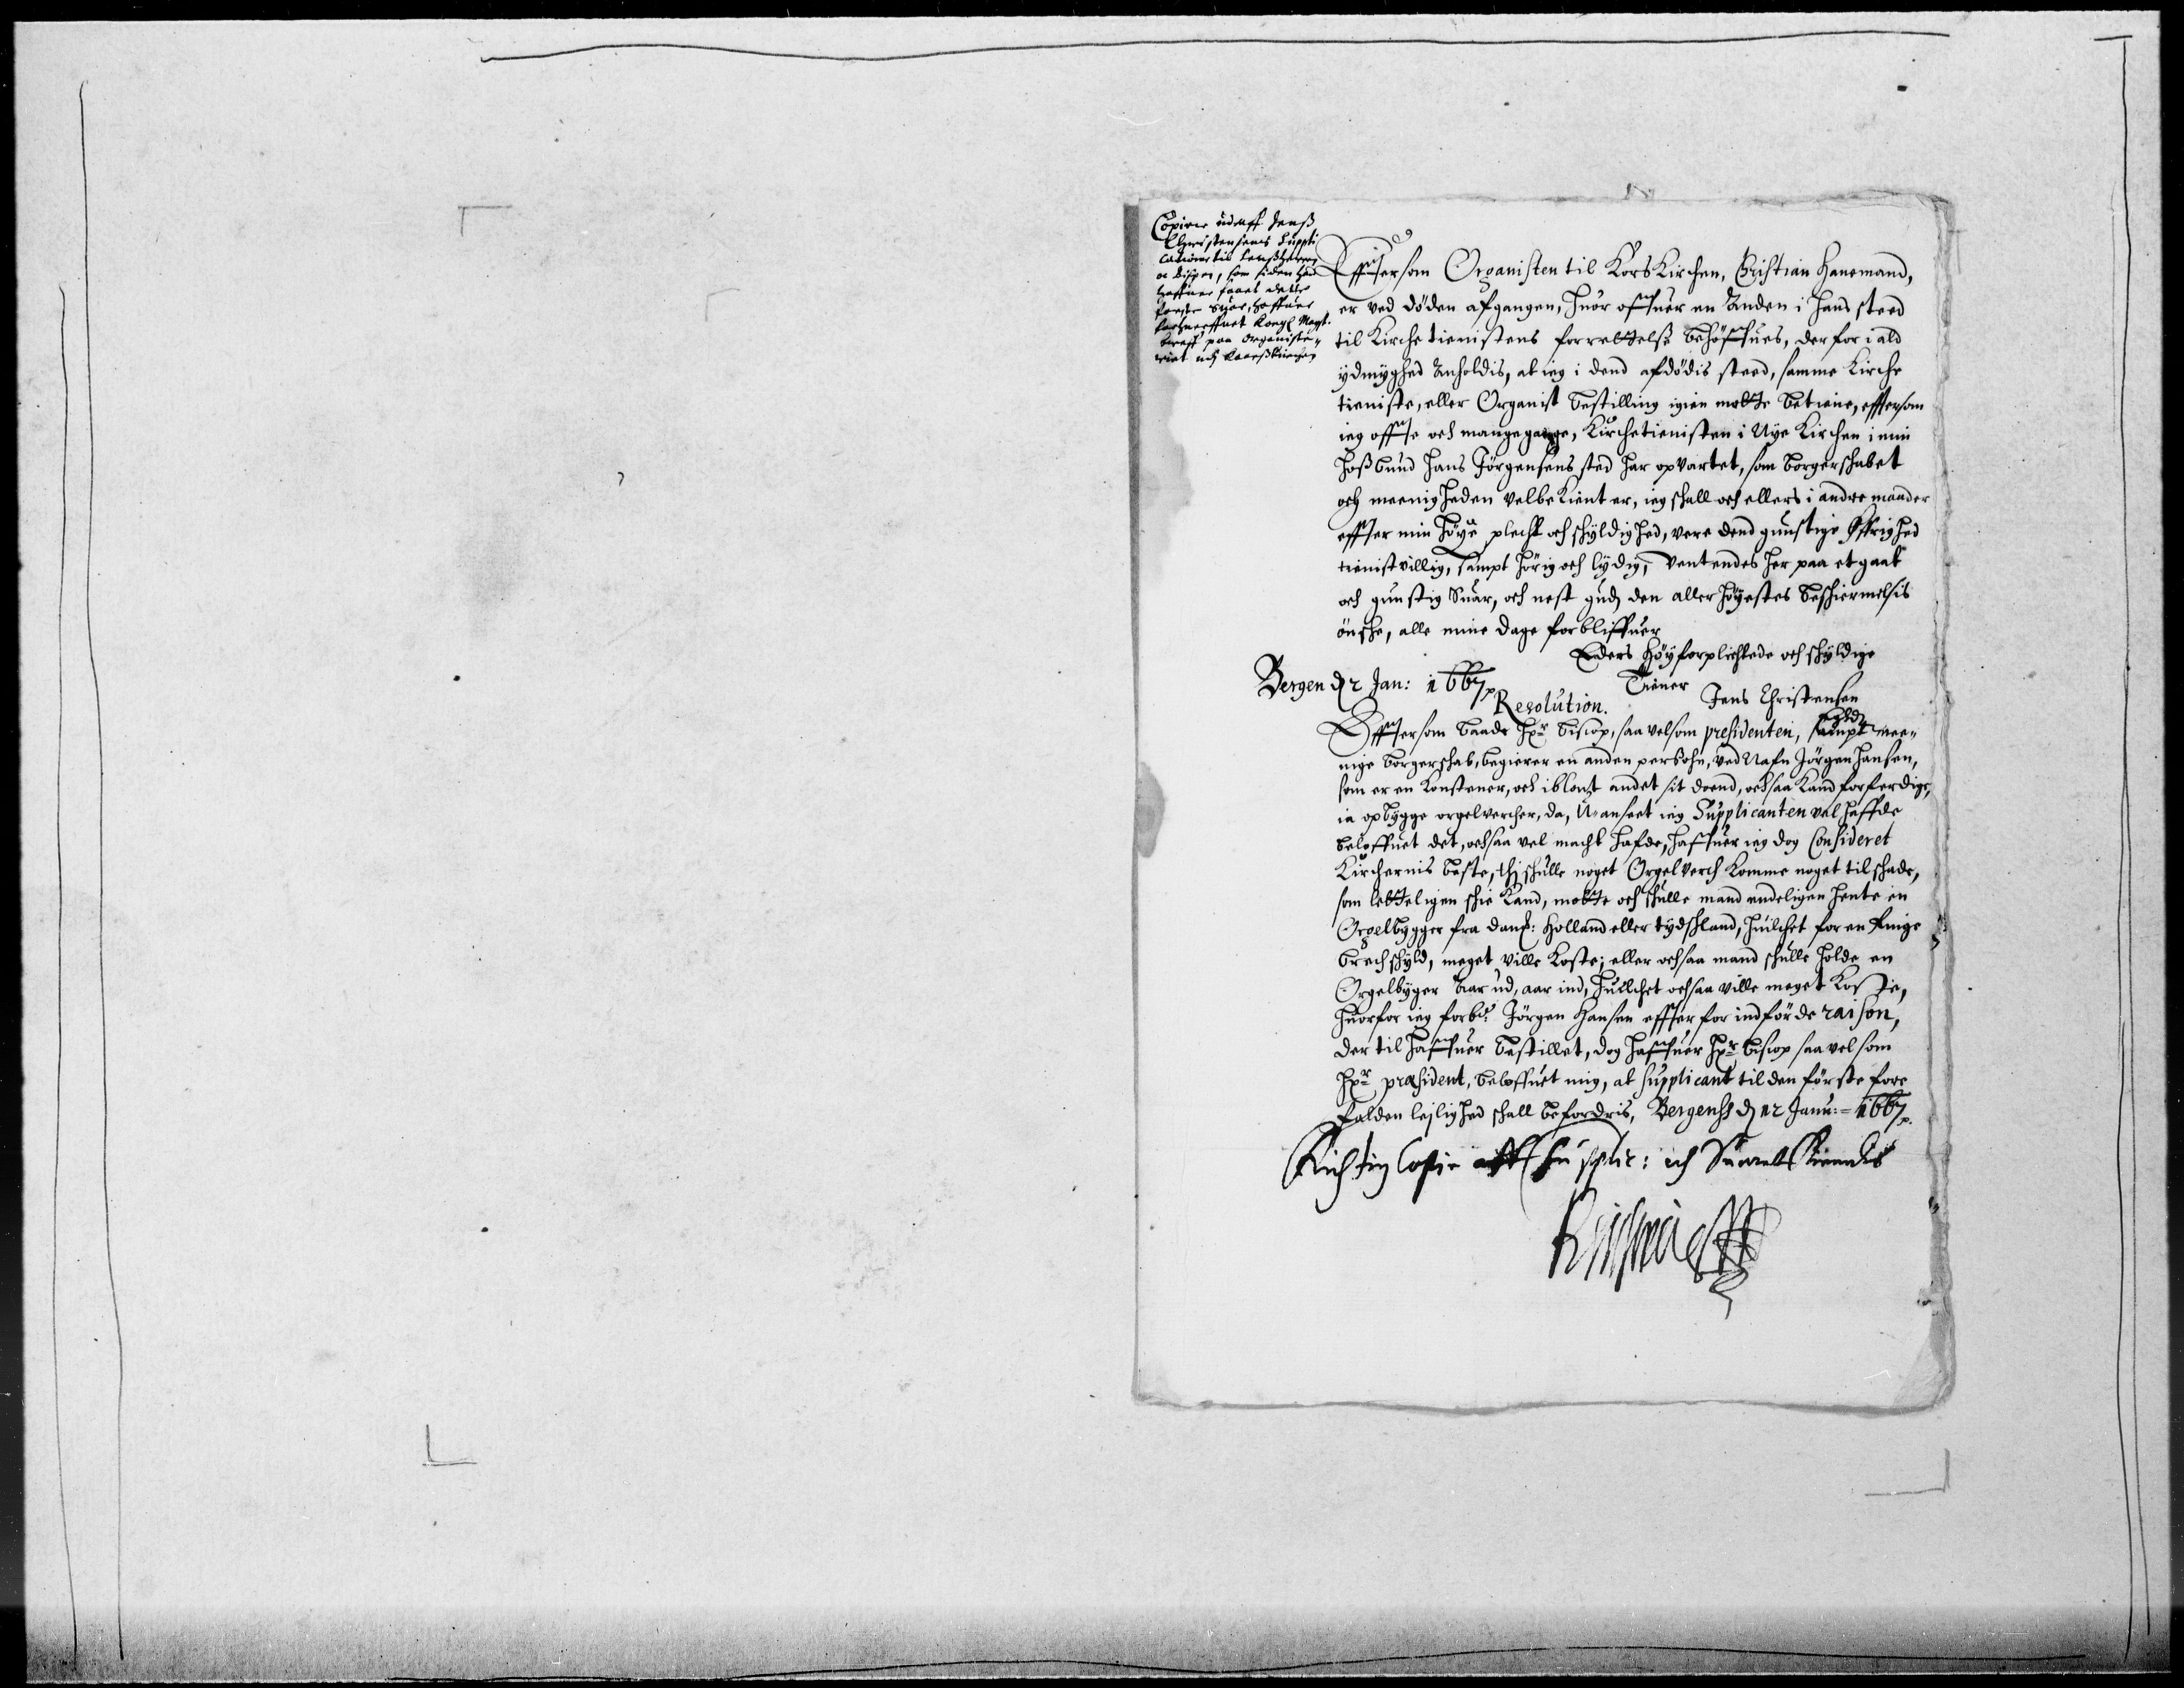 Copiere udaff Jenß
Christensens Suppli
cation til Lenßherren
oc bispen, som siden hand
haffuer faaet dette
første Suar, haffuer
forhuerffuet Kongl Mayt.
breff paa Organiste-
riet udj Kaarßkirchen
Effttersom Organisten til Kors Kirchen, Christian Hanemand,
er ved døden afgangen, huor offuer en Anden i hans steed
til Kirche tienistens forrettelse behöffues, der for i ald
ydmyghed Anholdis, at ieg i dend afdödis steed, samme Kirche
tieniste, eller Organist bestilling igien motte betiene, efftersom
ieg offte och mangegange, Kirchetienisten i Nye Kirchen i min
Hoßbund Hans Jörgensens sted har opvartet, som borgerschabet
och meenigheden velbekient er, ieg schall och ellers i andre maader
effter min höye plecht och schyldighed, vere dend gunstige Øffrighed
tienistvillig, sampt hörig och lydig, ventendes her paa et gaat
och gunstig Suar, och nest gud, den aller höyestes beschiermelsis
önsche, alle mine dage forbliffuer
Eders Höyforplichtede och schyldige
Tiener
Bergen d 2 Jan: 1667
Jens Christensen
Resolution.
Efftersom baade Hr biscop, saa velsom presidenten, sampt mee-
nige borgerschab, begierer en anden persohn, ved Nafn Jörgen Hansen,
som er en Konstener, och iblant andet sit doend, ochsaa kand forferdige,
ia opbygge orgelvercher, da, U-anseet ieg Supplicanten vel haffde
beloffuet det, ochsaa vel macht hafde, haffuer ieg dog Consideret
Kirchernis beste, thj schulle noget Orgelverch komme noget til schade,
som letteligen schie kand, motte och schulle mand endeligen hente en
Orgelbygger fra Holland eller tydschland, huilchet for en Ringe
brech schyld, meget ville koste; eller ochsaa mand schulle holde en
Orgelbyger Aar ud, aar ind, huilchet ochsaa ville meget Koste,
huorfor ieg forbe: Jörgen Hansen effter for indförde raison,
der til haffuer bestillet, dog haffuer Hr biscop saa vel som
Hr præsident, beloffuet mig, at supplicant til den förste fore
falden lejlighed schall befordris, Bergenhs d 12 Janu: 1667
Richtig Copie aff Supplic: och